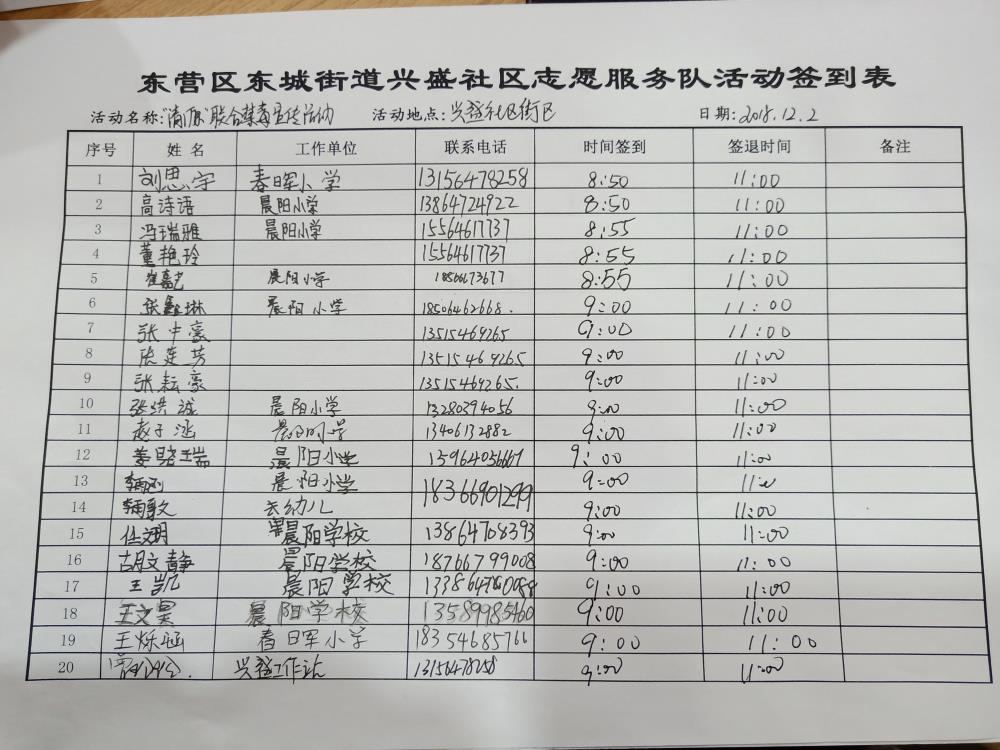 东营区东城街道兴盛社区志愿服务队活动签到表
活动名称: 联合禁毒宣传活动 活动地点: 兴盛社区街区 日期: 2018.12.2
序号 姓名 工作单位 联系电话 时间签到 签退时间 备注
1 刘思宇 春晖小学 13156478258 8:50 11:00
2 高诗语 晨阳小学 13864724922 8:50 11:00
3 冯瑞雅 晨阳小学 15564617737 8:55 11:00
4 董艳玲 15564617737 8:55 11:00
5 晨阳小学 8:55 11:00
6 张鑫琳 晨阳小学 18506462668. 9:00 11:00
7 张中豪 13515469265 9:00 11:00
8 张莲芳 13515469265 9:00 11:00
9 张耘豪 13515469265. 9:00 11:00
10 张洪诚 晨阳小学 13280394056 9:00 11:00
11 赵子涵 晨阳小学 13406132882 9:00 11:00
12 姜晓瑞 晨阳小学 9:00 11:00
13 晨阳小学 18366901299 9:00 11:00
14 9:00 11:00
15 晨阳学校 13864708393 9:00 11:00
16 胡文静 晨阳学校 18766799008 9:00 11:00
17 王凯 晨阳学校 9:00 11:00
18 王文昊 晨阳学校 13589985460 9:00 11:00
19 王烁涵 春晖小学 18354685766 9:00 11:00
20 兴盛工作站 13156478258 9:00 11:00